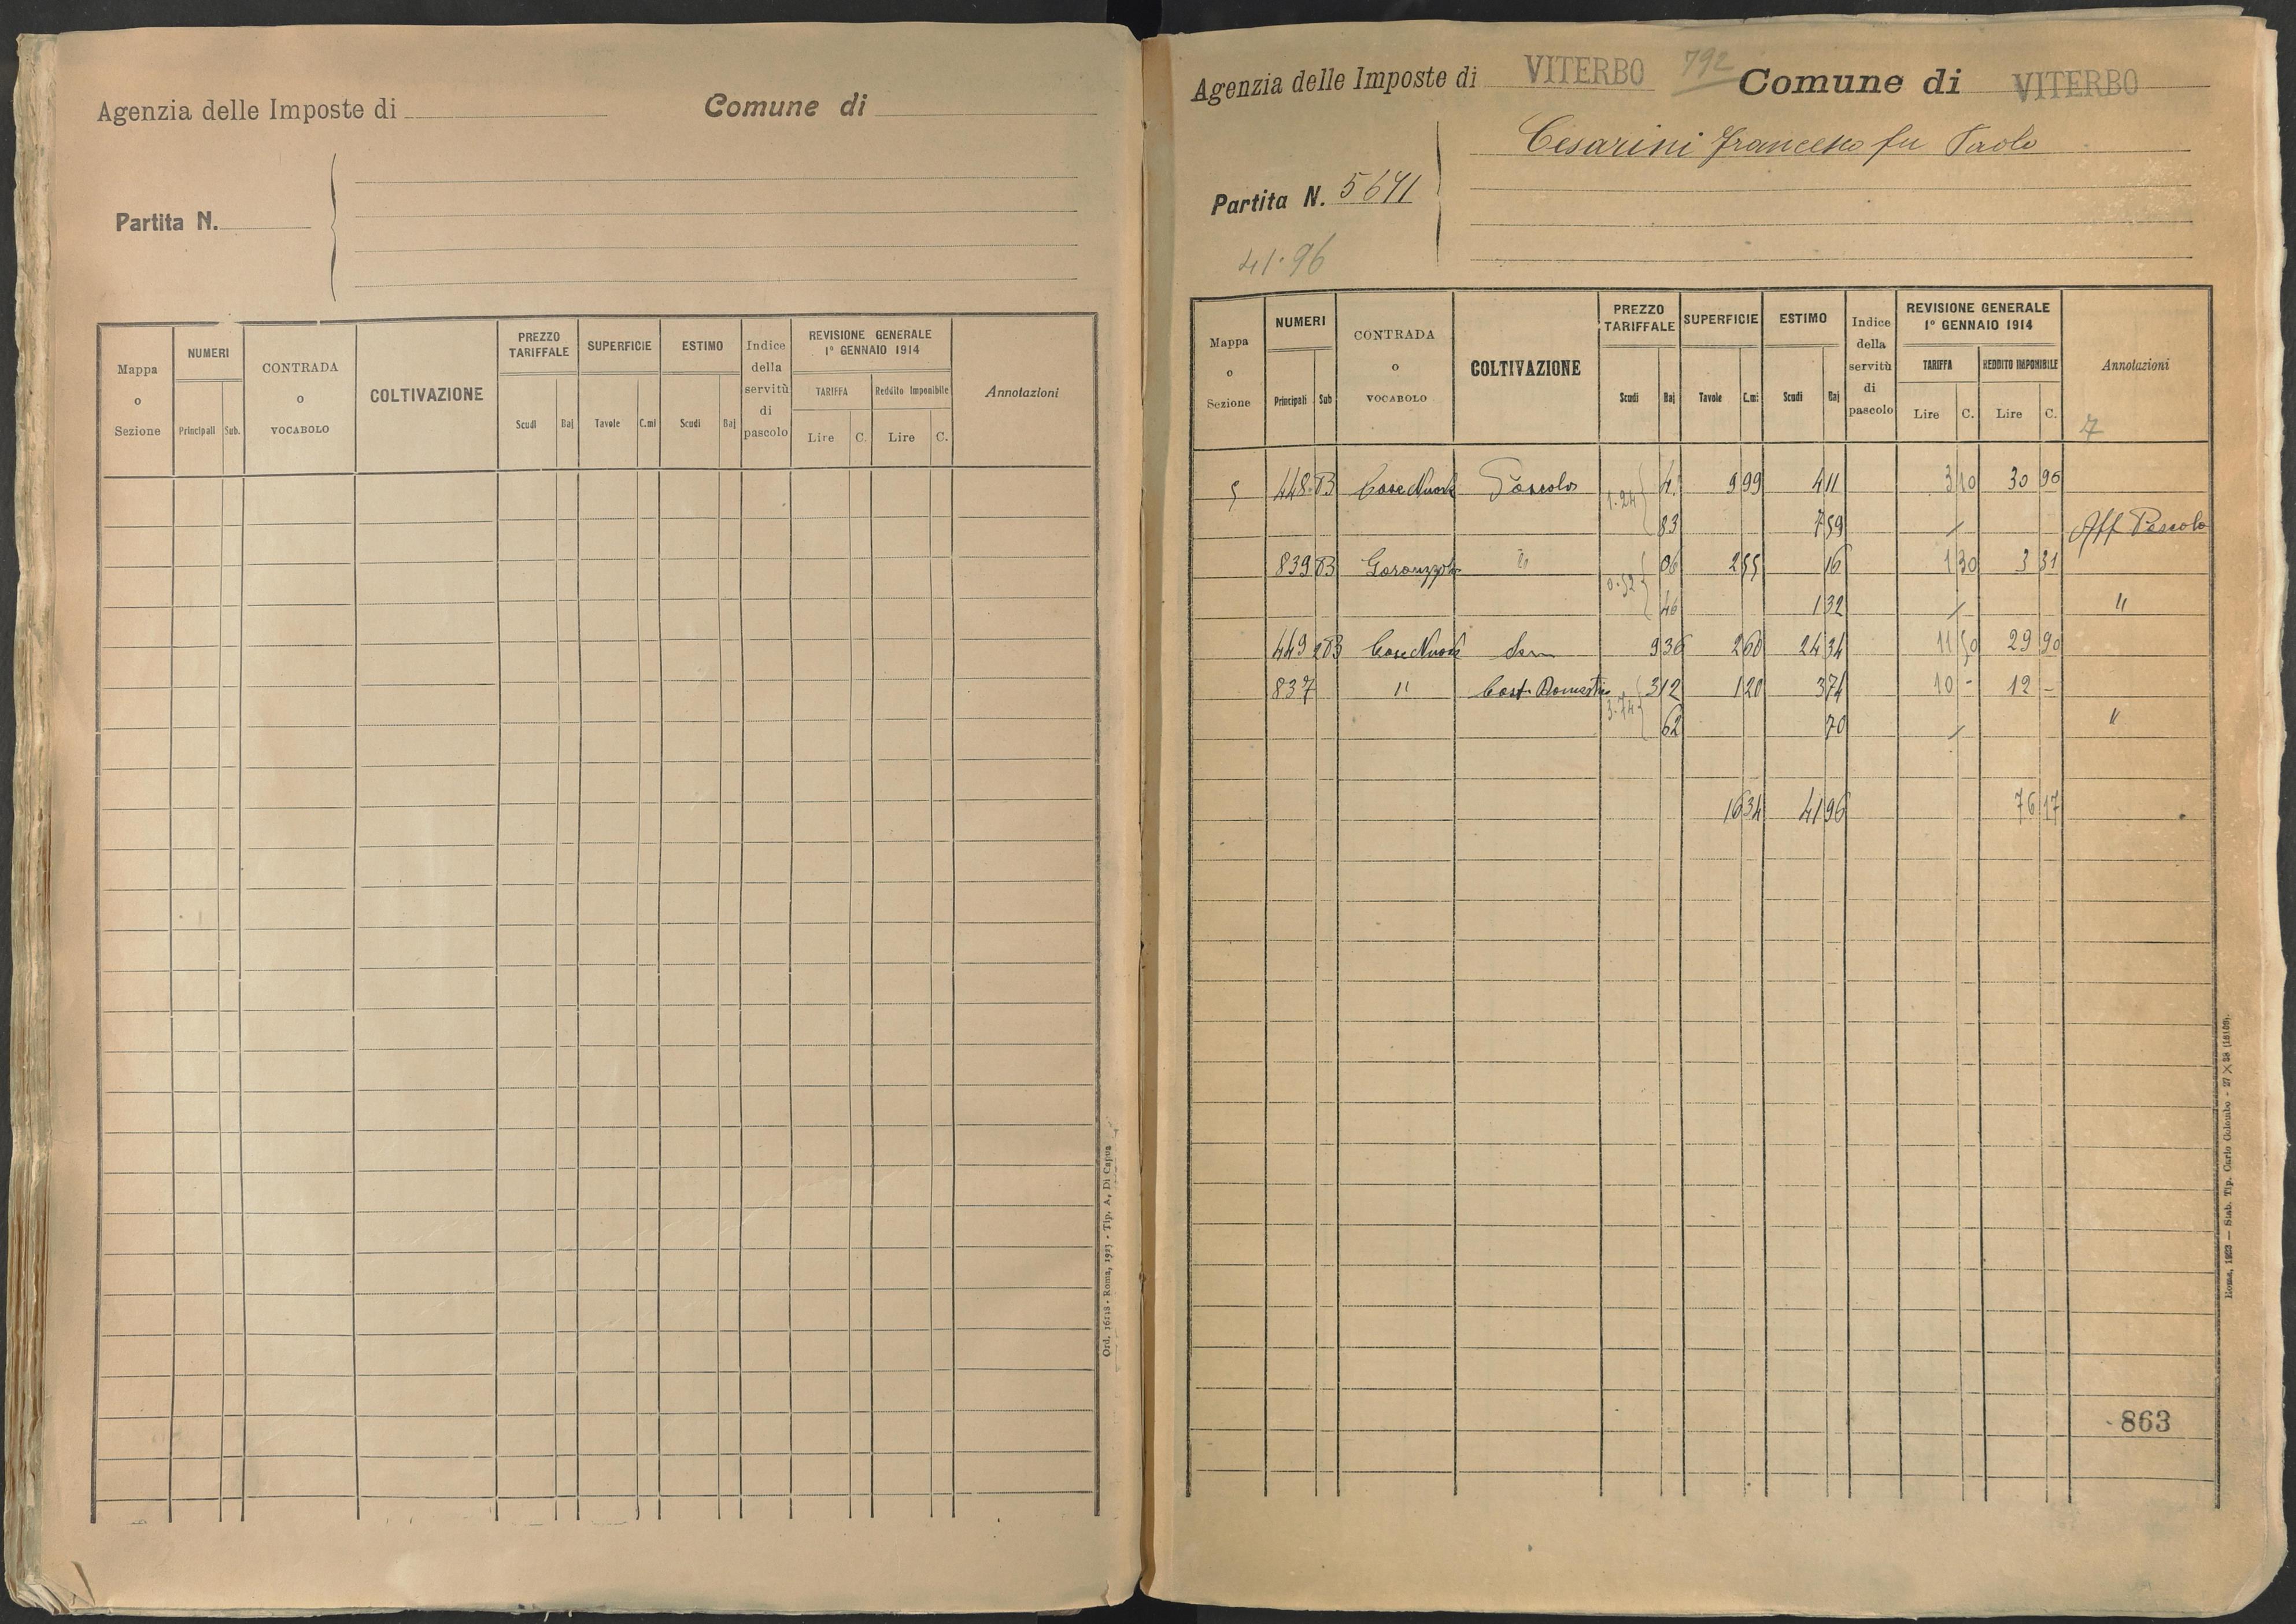 Agenzia delle Imposte di
Comune di
Partita N.
Mappa o Sezione
NUMERI
Principali
Sub.
CONTRADA o VOCABOLO
COLTIVAZIONE
PREZZO TARIFFALE
Scudi
Baj
SUPERFICIE
Tavole
C.mi
ESTIMO
Scudi
Baj
Indice della servitù di pascolo
REVISIONE GENERALE 1° GENNAIO 1914
TARIFFA
Reddito Imponibile
Lire
C.
Lire
C.
Annotazioni
Ord. 16118 - Roma, 1923 - Tip. A. Di Capua
Agenzia delle Imposte di VITERBO 792 Comune di VITERBO
Cesarini Francesco fu Paolo
Partita N. 5641
41.96
Mappa o Sezione
NUMERI
Principali
Sub
CONTRADA o VOCABOLO
COLTIVAZIONE
PREZZO TARIFFALE
Scudi
Baj
SUPERFICIE
Tavole
C.mi
ESTIMO
Scudi
Baj
Indice della servitù di pascolo
REVISIONE GENERALE 1° GENNAIO 1914
TARIFFA
REDDITO IMPONIBILE
Lire
C.
Lire
C.
Annotazioni
7
448 B Case Nuove Pascolo 1.24 41 9 99 4 11 3 10 30 96
83 7 59 Aff Pascolo
839 B " 0.52 06 2 55 16 1 30 3 31
46 1 32 "
449 Case Nuove 9 36 2 60 24 34 11 50 29 90
837 " Cast. Domestico 3.74 3 12 1 20 3 74 10 - 12 -
62 70 "
16 34 41 96 76 17
863
Roma, 1923 — Stab. Tip. Carlo Colombo - 27 × 38 (18109).